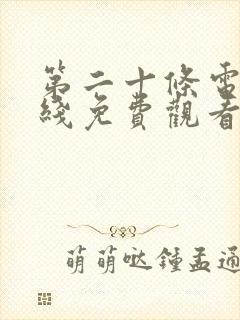 第二十條電
綫免費觀看
萌萌哒鍾孟通